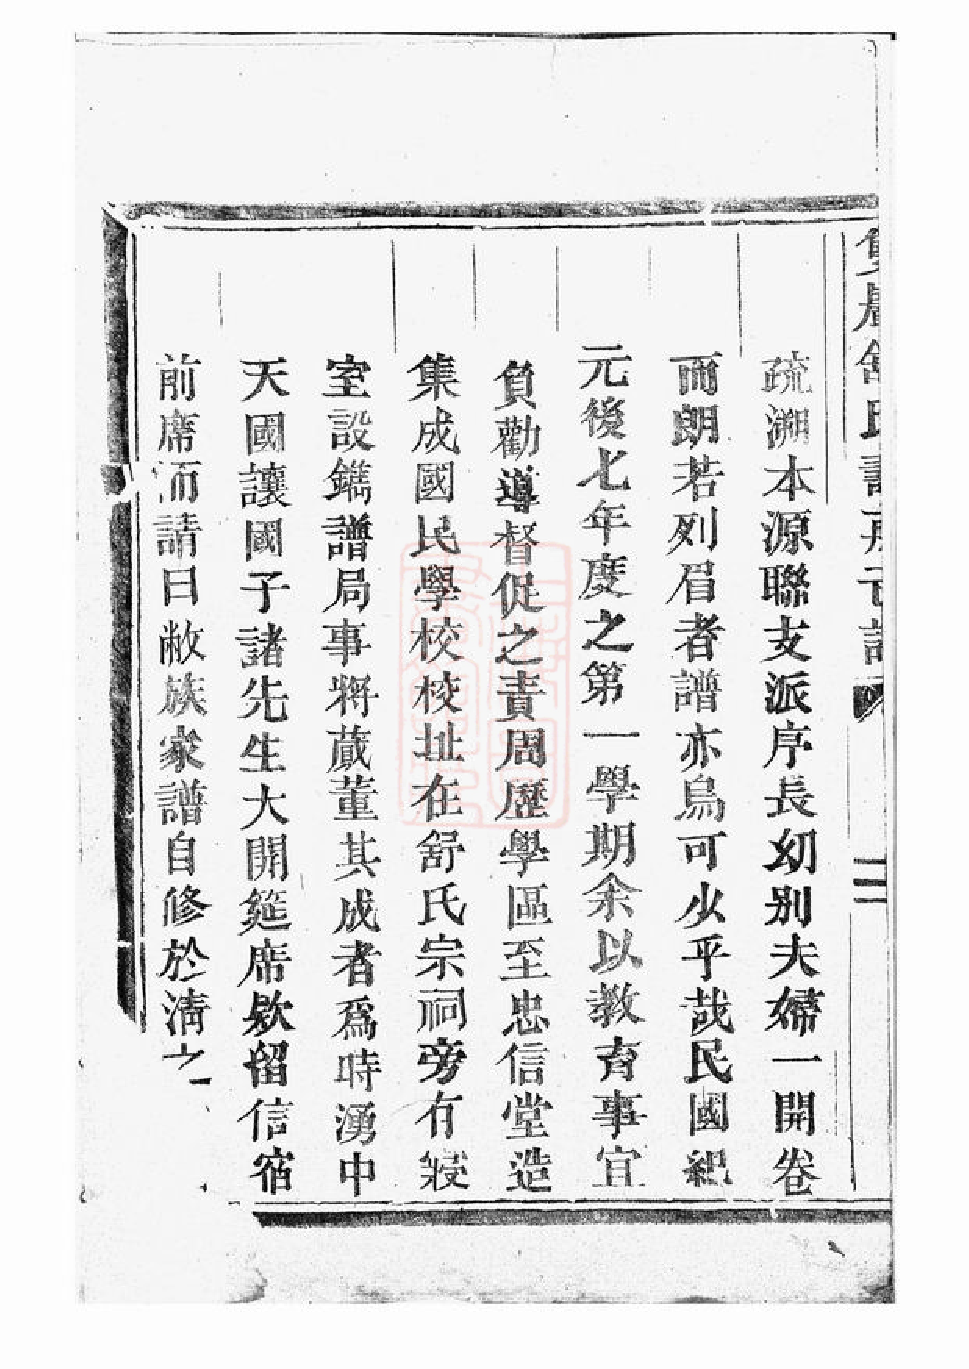 疏溯本源聯支派序長幼别夫婦一開卷
而朗若列眉者譜亦烏可少乎哉民國紀
元後七年度之第一學期余以教育事宜
負勸導督促之責周歷學區至忠信堂造
集成國民學校校址在舒氏宗祠旁有寢
室設鐫譜局事將蕆董其成者爲時湧中
天國讓國子諸先生大開筵席欵留信宿
前席而請曰敝族家譜自修於淸之